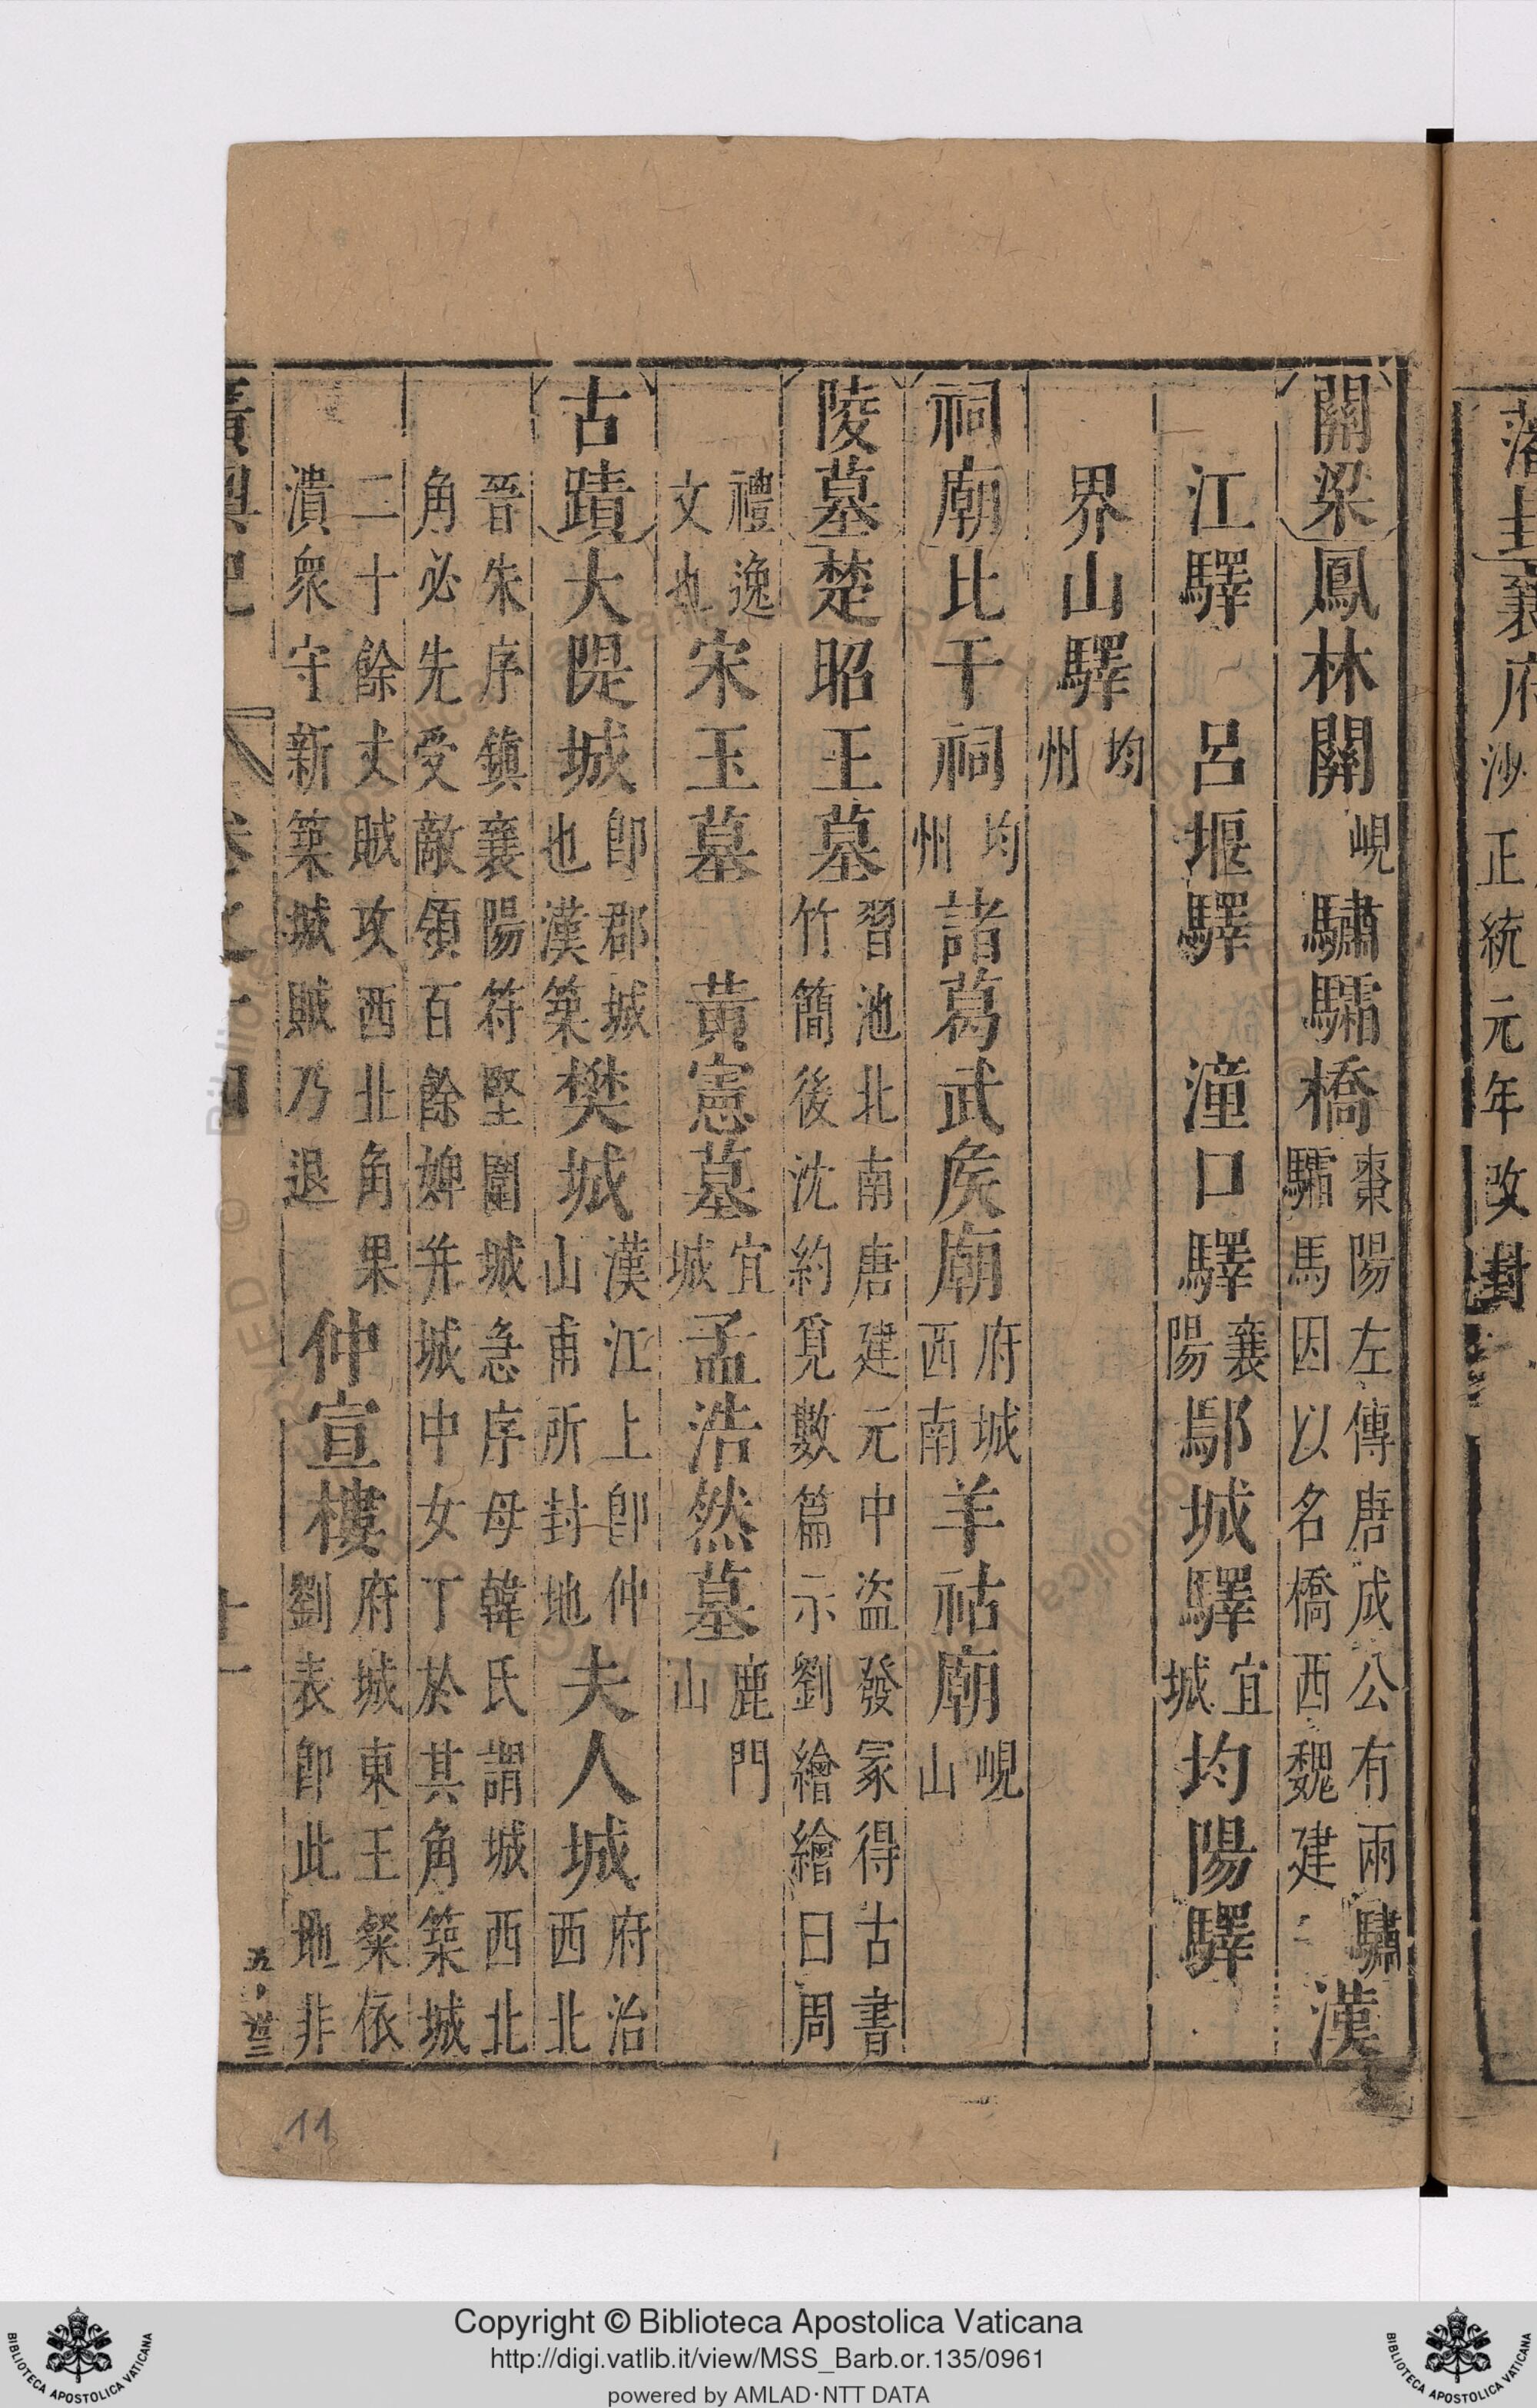 藩封襄府沙正統元年改封
關梁鳳林關峴驌驦橋棗陽左傳唐成公有兩驌驦馬因以名橋西魏建漢
江驛呂堰驛潼口驛襄陽鄢城驛宜城均陽驛
界山驛均州
祠廟比干祠均州諸葛武矦廟府城西南羊祜廟峴山
陵墓楚昭王墓習池北南唐建元中盗發冢得古書竹簡後沈約覓數篇示劉繪繪曰周
禮逸文也宋玉墓黃憲墓宜城孟浩然墓鹿門山
古蹟大隄城卽郡城也漢築樊城漢江上卽仲山甫所封地夫人城府治西北
晉朱序鎮襄陽符堅圍城急序母韓氏謂城西北角必先受敵領百餘婢并城中女丁於其角築城
二十餘丈賊攻西北角果潰衆守新築城賊乃退仲宣樓府城東王粲依劉表卽此地非
廣輿記 卷之十四 十一
11
Copyright © Biblioteca Apostolica Vaticana
http://digi.vatlib.it/view/MSS_Barb.or.135/0961
powered by AMLAD·NTT DATA
BIBLIOTECA APOSTOLICA VATICANA
BIBLIOTECA APOSTOLICA VATICANA